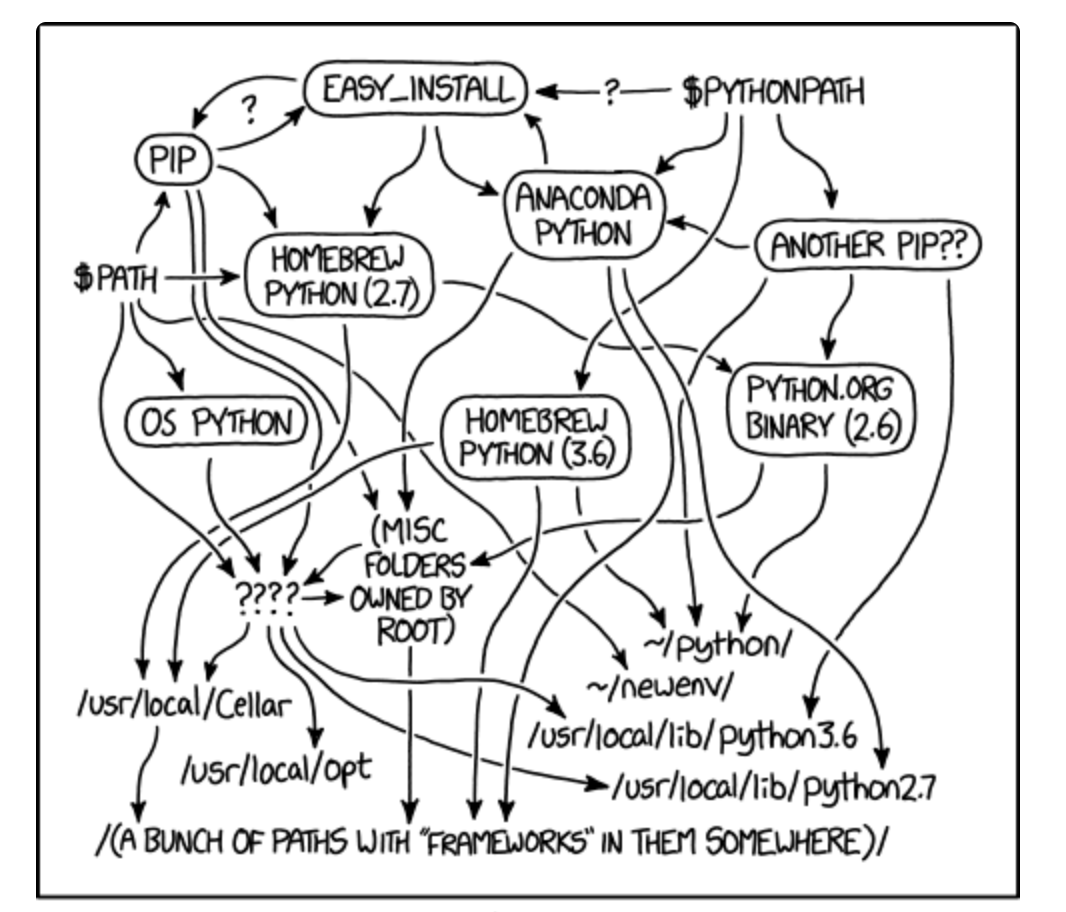 EASY_INSTALL
?
$PYTHONPATH
?
PIP
ANACONDA
PYTHON
ANOTHER PIP??
HOMEBREW
PYTHON (2.7)
$PATH
OS PYTHON
HOMEBREW
PYTHON (3.6)
PYTHON.ORG
BINARY (2.6)
(MISC
FOLDERS
OWNED BY
ROOT)
????
~/python/
~/newenv/
/usr/local/Cellar
/usr/local/lib/python3.6
/usr/local/opt
/usr/local/lib/python2.7
/(A BUNCH OF PATHS WITH "FRAMEWORKS" IN THEM SOMEWHERE)/